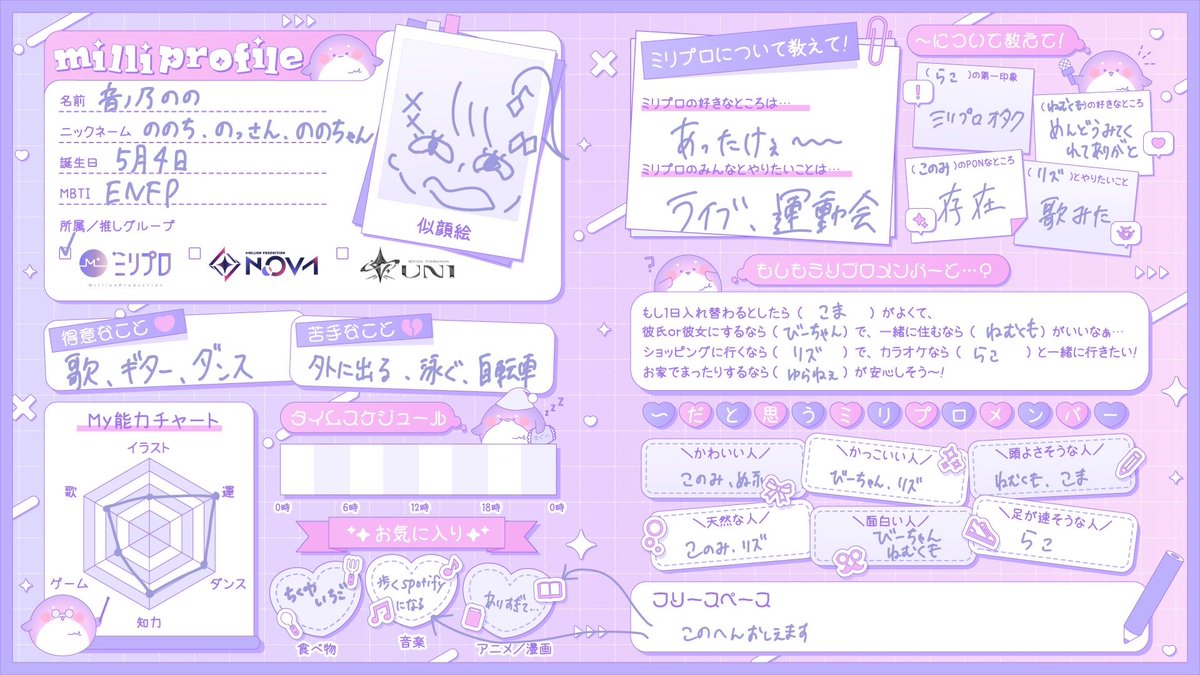 milli profile
名前 音ノ乃のの
ニックネーム ののち、のっさん、ののちゃん
誕生日 5月4日
MBTI ENFP
所属/推しグループ
ミリプロ
MillionProduction
MILLION PRODUCTION
NOVA
UNI
似顔絵
得意なこと
歌、ギター、ダンス
苦手なこと
外に出る、泳ぐ、自転車
My能力チャート
イラスト
運
ダンス
知力
ゲーム
歌
タイムスケジュール
zzz
0時 6時 12時 18時 0時
お気に入り
ちくわ
いちご
食べ物
歩くspotify
になる
音楽
ありすぎて…
アニメ/漫画
ミリプロについて教えて!
ミリプロの好きなところは…
あったけぇ〜〜
ミリプロのみんなとやりたいことは…
ライブ、運動会
〜について教えて!
(らこ)の第一印象
ミリプロオタク
(ねむくも)の好きなところ
めんどうみてく
れてありがと
(このみ)のPONなところ
存在
(リズ)とやりたいこと
歌みた
もしもミリプロメンバーと…?
もし1日入れ替わるとしたら(こま)がよくて、
彼氏or彼女にするなら(びーちゃん)で、一緒に住むなら(ねむくも)がいいなぁ…
ショッピングに行くなら(リズ)で、カラオケなら(らこ)と一緒に行きたい!
お家でまったりするなら(ゆらねぇ)が安心しそう〜!
〜だと思うミリプロメンバー
\かわいい人/
このみ、ぬ
\かっこいい人/
びーちゃん、リズ
\頭よさそうな人/
ねむくも、こま
\天然な人/
このみ、リズ
\面白い人/
びーちゃん
ねむくも
\足が速そうな人/
らこ
フリースペース
このへんおしえます